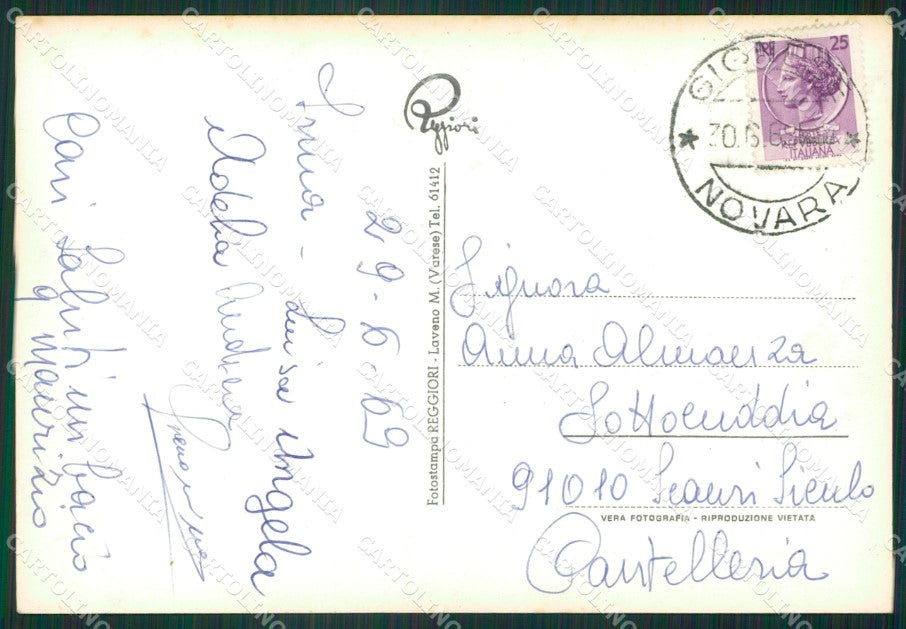 Reggiori
Fotostampa REGGIORI - Laveno M. (Varese) Tel. 61412
29-6-69
Irma - Luisa Angela
Adelia Andrea
Cari Saluti un bacio
a Maurizio
25
REPUBBLICA
ITALIANA
30.6.6
NOVARA
Signora
Anna Almanza
Sottocuddia
91010 Scauri Siculo
Pantelleria
VERA FOTOGRAFIA - RIPRODUZIONE VIETATA
CARTOLINOMANIA